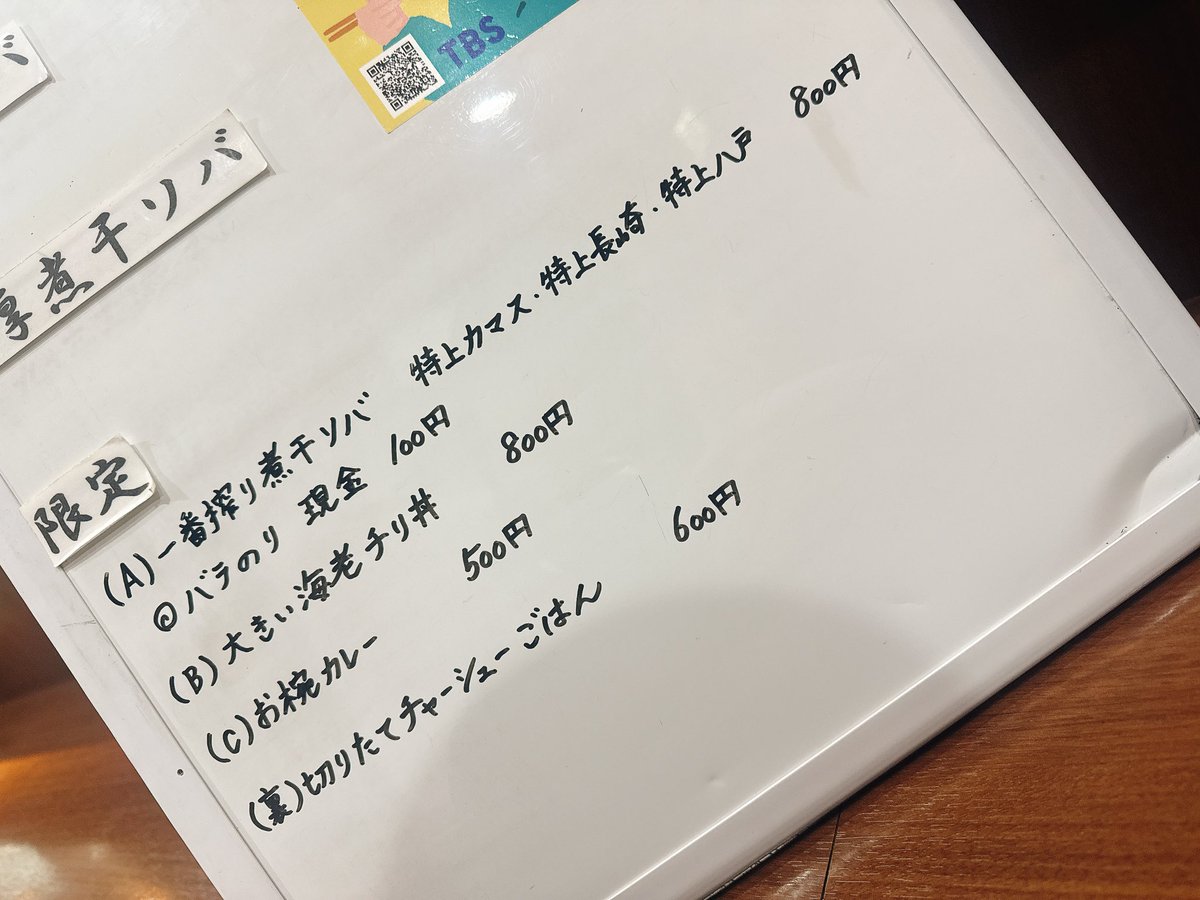 バ
TBS
淳煮干ソバ
限定
(A)一番搾り煮干ソバ 特上カマス・特上長崎・特上八戸 800円
@バラのり 現金 100円
(B)大きい海老チリ丼 800円
(C)お椀カレー 500円
(裏)切りたてチャーシューごはん 600円